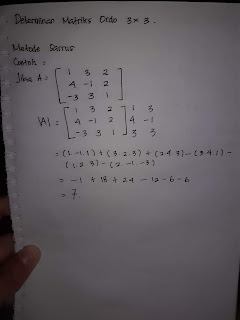 Determinan Matriks Ordo 3 x 3.
Metode Sarrus
Contoh :
Jika A = [ 1 3 2
4 -1 2
-3 3 1 ]
|A| = [ 1 3 2 ] 1 3
4 -1 2 4 -1
-3 3 1 3 3
= (1.-1.1) + (3.2.3) + (2.4.3) - (3.4.1) -
(1.2.3) - (2.-1.-3)
= -1 + 18 + 24 - 12 - 6 - 6
= 7.